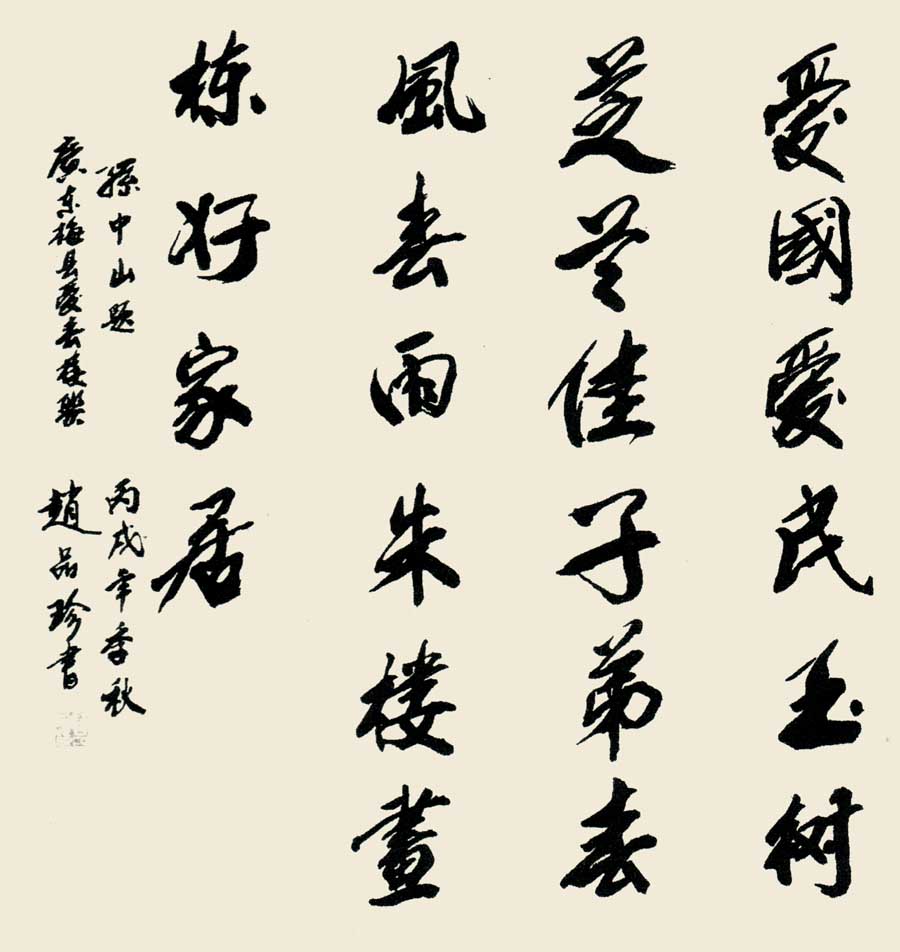 愛國愛民玉树
芝兰佳子弟春
風春雨朱樓畫
栋好家居
孫中山题
丙戌年季秋
廣东梅县愛春樓聯
趙品珍書